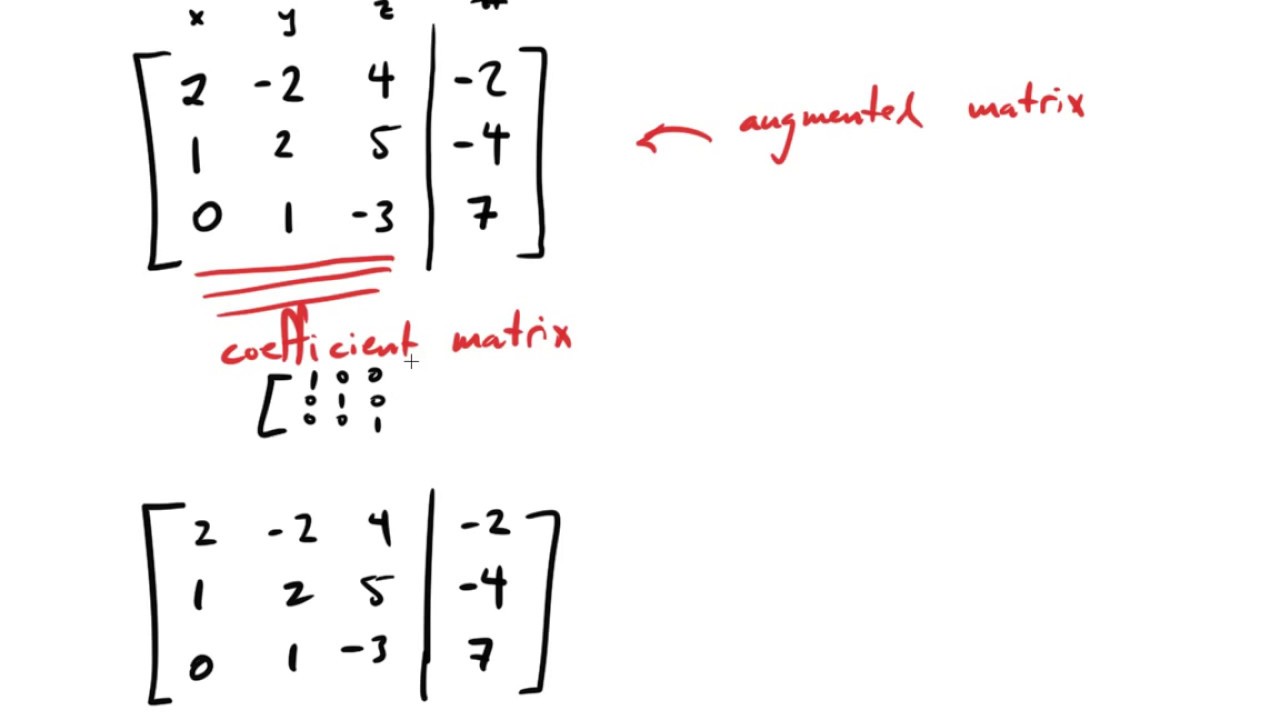 x y z #
2 -2 4 -2
1 2 5 -4
0 1 -3 7
augmented matrix
coefficient matrix
1 0 0
0 1 0
0 0 1
2 -2 4 -2
1 2 5 -4
0 1 -3 7